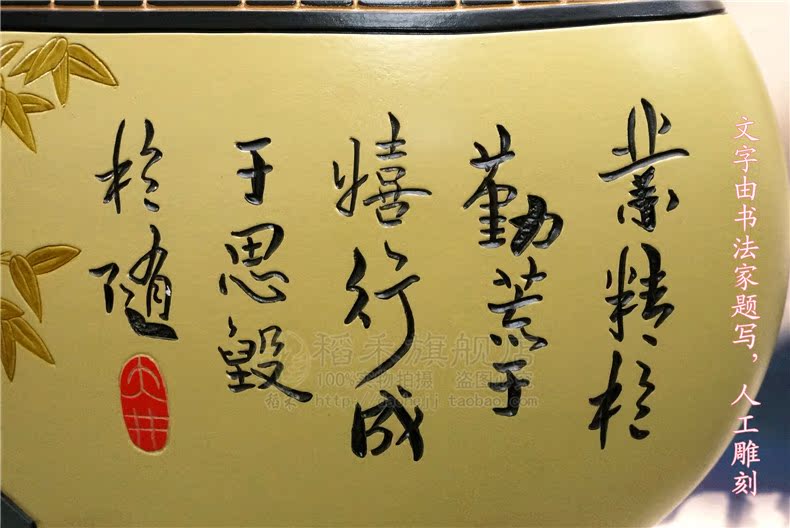 業精於
勤荒于
嬉行成
于思毀
於隨
文字由书法家题写，人工雕刻
稻禾旗舰店
100%实物拍摄 盗图必究
稻禾